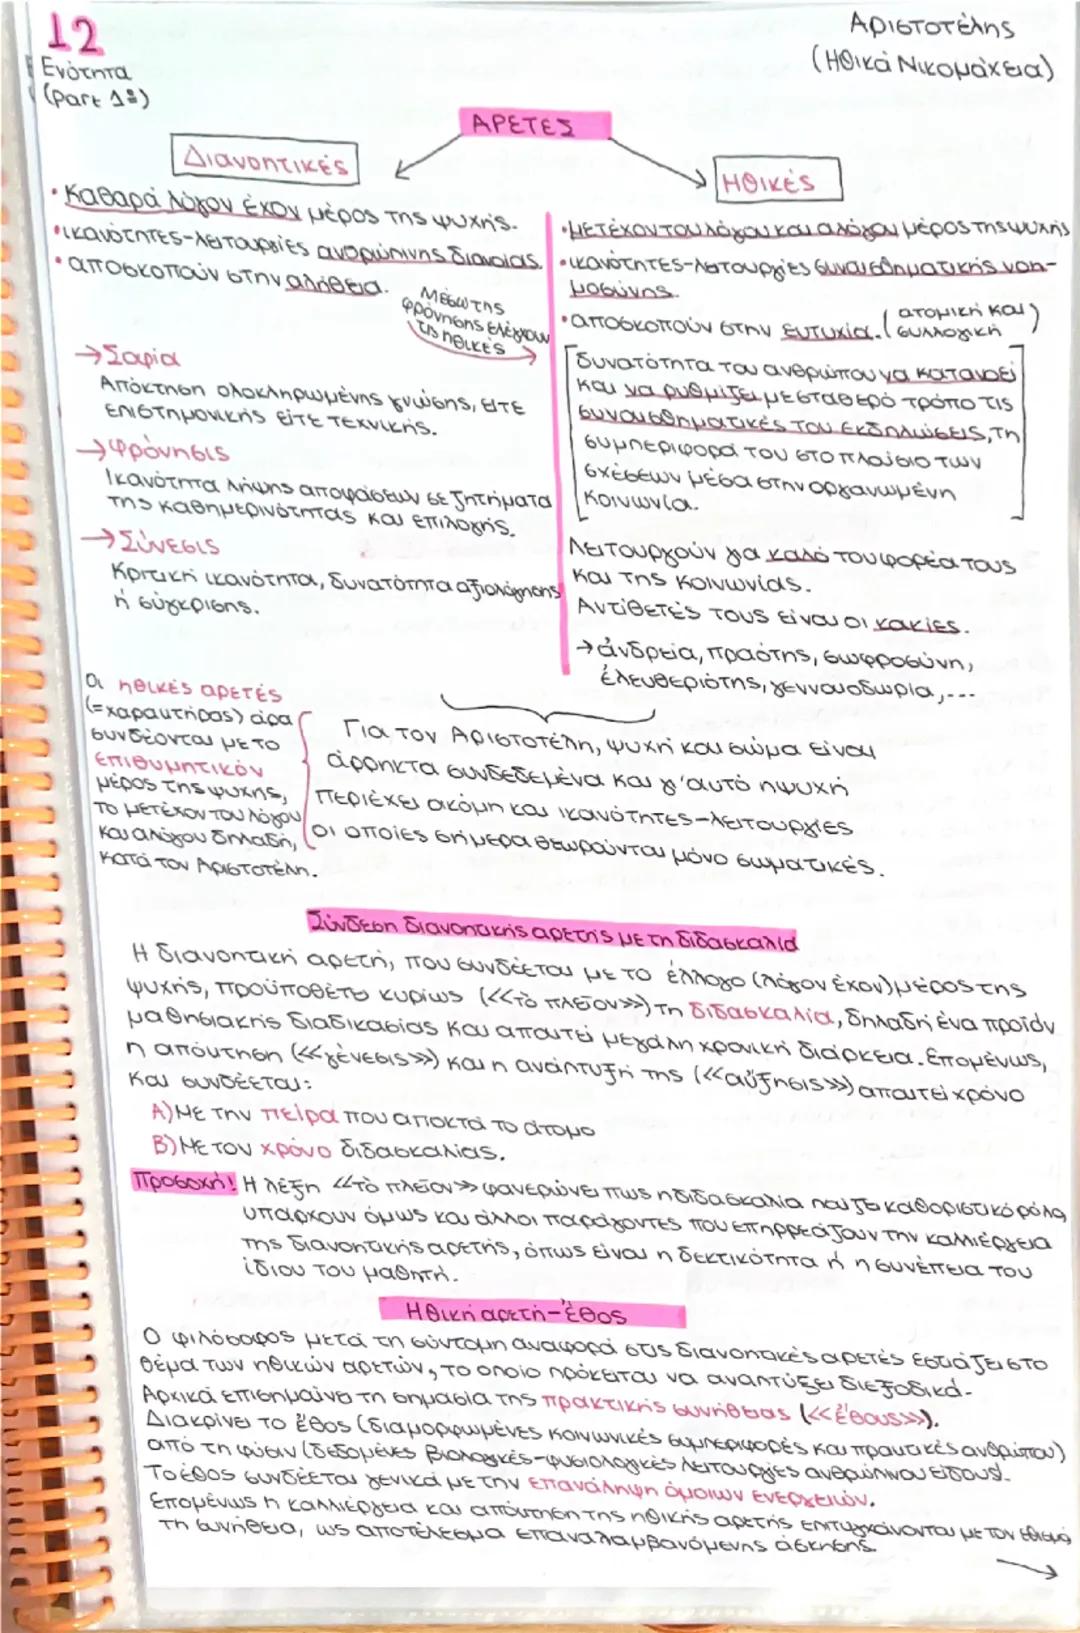 12
Ενότητα
(Part 1º)
Αριστοτέλης
(Ηθικά Νικομάχεια)
ΑΡΕΤΕΣ
Διανοητικές
• Καθαρά λόγον έχον μέρος της ψυχής.
• ικανότητες-λειτουργίες ανθρώπινης διανοίας.
• αποσκοπούν στην αλήθεια.
Μέσω της
φρόνησης ελέγχουν
τις ηθικές
→Σοφία
Απόκτηση ολοκληρωμένης γνώσης, είτε
επιστημονικής είτε τεχνικής.
→Φρόνησις
Ικανότητα λήψης αποφάσεων σε ζητήματα
της καθημερινότητας και επιλογής.
→Σύνεσις
Κριτική ικανότητα, δυνατότητα αξιολόγησης
ή σύγκρισης.
Ηθικές
• μετέχον του λόγου και αλόγου μέρος της ψυχής
• ικανότητες-λειτουργίες συναισθηματικής νοη-
μοσύνης.
• αποσκοπούν στην ευτυχία. (ατομική και
συλλογική)
[δυνατότητα του ανθρώπου να κατανοεί
και να ρυθμίζει με σταθερό τρόπο τις
συναισθηματικές του εκδηλώσεις, τη
συμπεριφορά του στο πλαίσιο των
σχέσεων μέσα στην οργανωμένη
κοινωνία.]
Λειτουργούν για καλό του φορέα τους
και της κοινωνίας.
Αντίθετές τους είναι οι κακίες.
→ἀνδρεία, πραότης, σωφροσύνη,
ἐλευθεριότης, γενναιοδωρία,...
Οι ηθικές αρετές
(=χαρακτήρας) άρα
συνδέονται με το
επιθυμητικόν
μέρος της ψυχής,
το μετέχον του λόγου
και αλόγου δηλαδή,
κατά τον Αριστοτέλη.
Για τον Αριστοτέλη, ψυχή και σώμα είναι
άρρηκτα συνδεδεμένα και γι'αυτό η ψυχή
περιέχει ακόμη και ικανότητες-λειτουργίες
οι οποίες σήμερα θεωρούνται μόνο σωματικές.
Σύνδεση διανοητικής αρετής με τη διδασκαλία
Η διανοητική αρετή, που συνδέεται με το έλλογο (λόγον ἔχον) μέρος της
ψυχής, προϋποθέτει κυρίως (<<τὸ πλεῖον>>) τη διδασκαλία, δηλαδή ένα προϊόν
μαθησιακής διαδικασίας και απαιτεί μεγάλη χρονική διάρκεια. Επομένως,
η απόκτηση (<<γένεσις>>) και η ανάπτυξή της (<<αὔξησις>>) απαιτεί χρόνο
και συνδέεται:
Α) Με την πείρα που αποκτά το άτομο
Β) Με τον χρόνο διδασκαλίας.
Προσοχή! Η λέξη <<τὸ πλεῖον>> φανερώνει πως η διδασκαλία παίζει καθοριστικό ρόλο,
υπάρχουν όμως και άλλοι παράγοντες που επηρρεάζουν την καλλιέργεια
της διανοητικής αρετής, όπως είναι η δεκτικότητα ή η συνέπεια του
ίδιου του μαθητή.
Ηθική αρετή-ἔθος
Ο φιλόσοφος μετά τη σύντομη αναφορά στις διανοητικές αρετές εστιάζει στο
θέμα των ηθικών αρετών, το οποίο πρόκειται να αναπτύξει διεξοδικά.
Αρχικά επισημαίνει τη σημασία της πρακτικής συνήθειας (<<ἔθους>>).
Διακρίνει το ἔθος (διαμορφωμένες κοινωνικές συμπεριφορές και πρακτικές ανθρώπου)
από τη φύσιν (δεδομένες βιολογικές-φυσιολογικές λειτουργίες ανθρώπινου είδους).
Το ἔθος συνδέεται γενικά με την επανάληψη όμοιων ενεργειών.
Επομένως η καλλιέργεια και απόκτηση της ηθικής αρετής επιτυγχάνονται με τον εθισμό,
τη συνήθεια, ως αποτέλεσμα επαναλαμβανόμενης άσκησης.